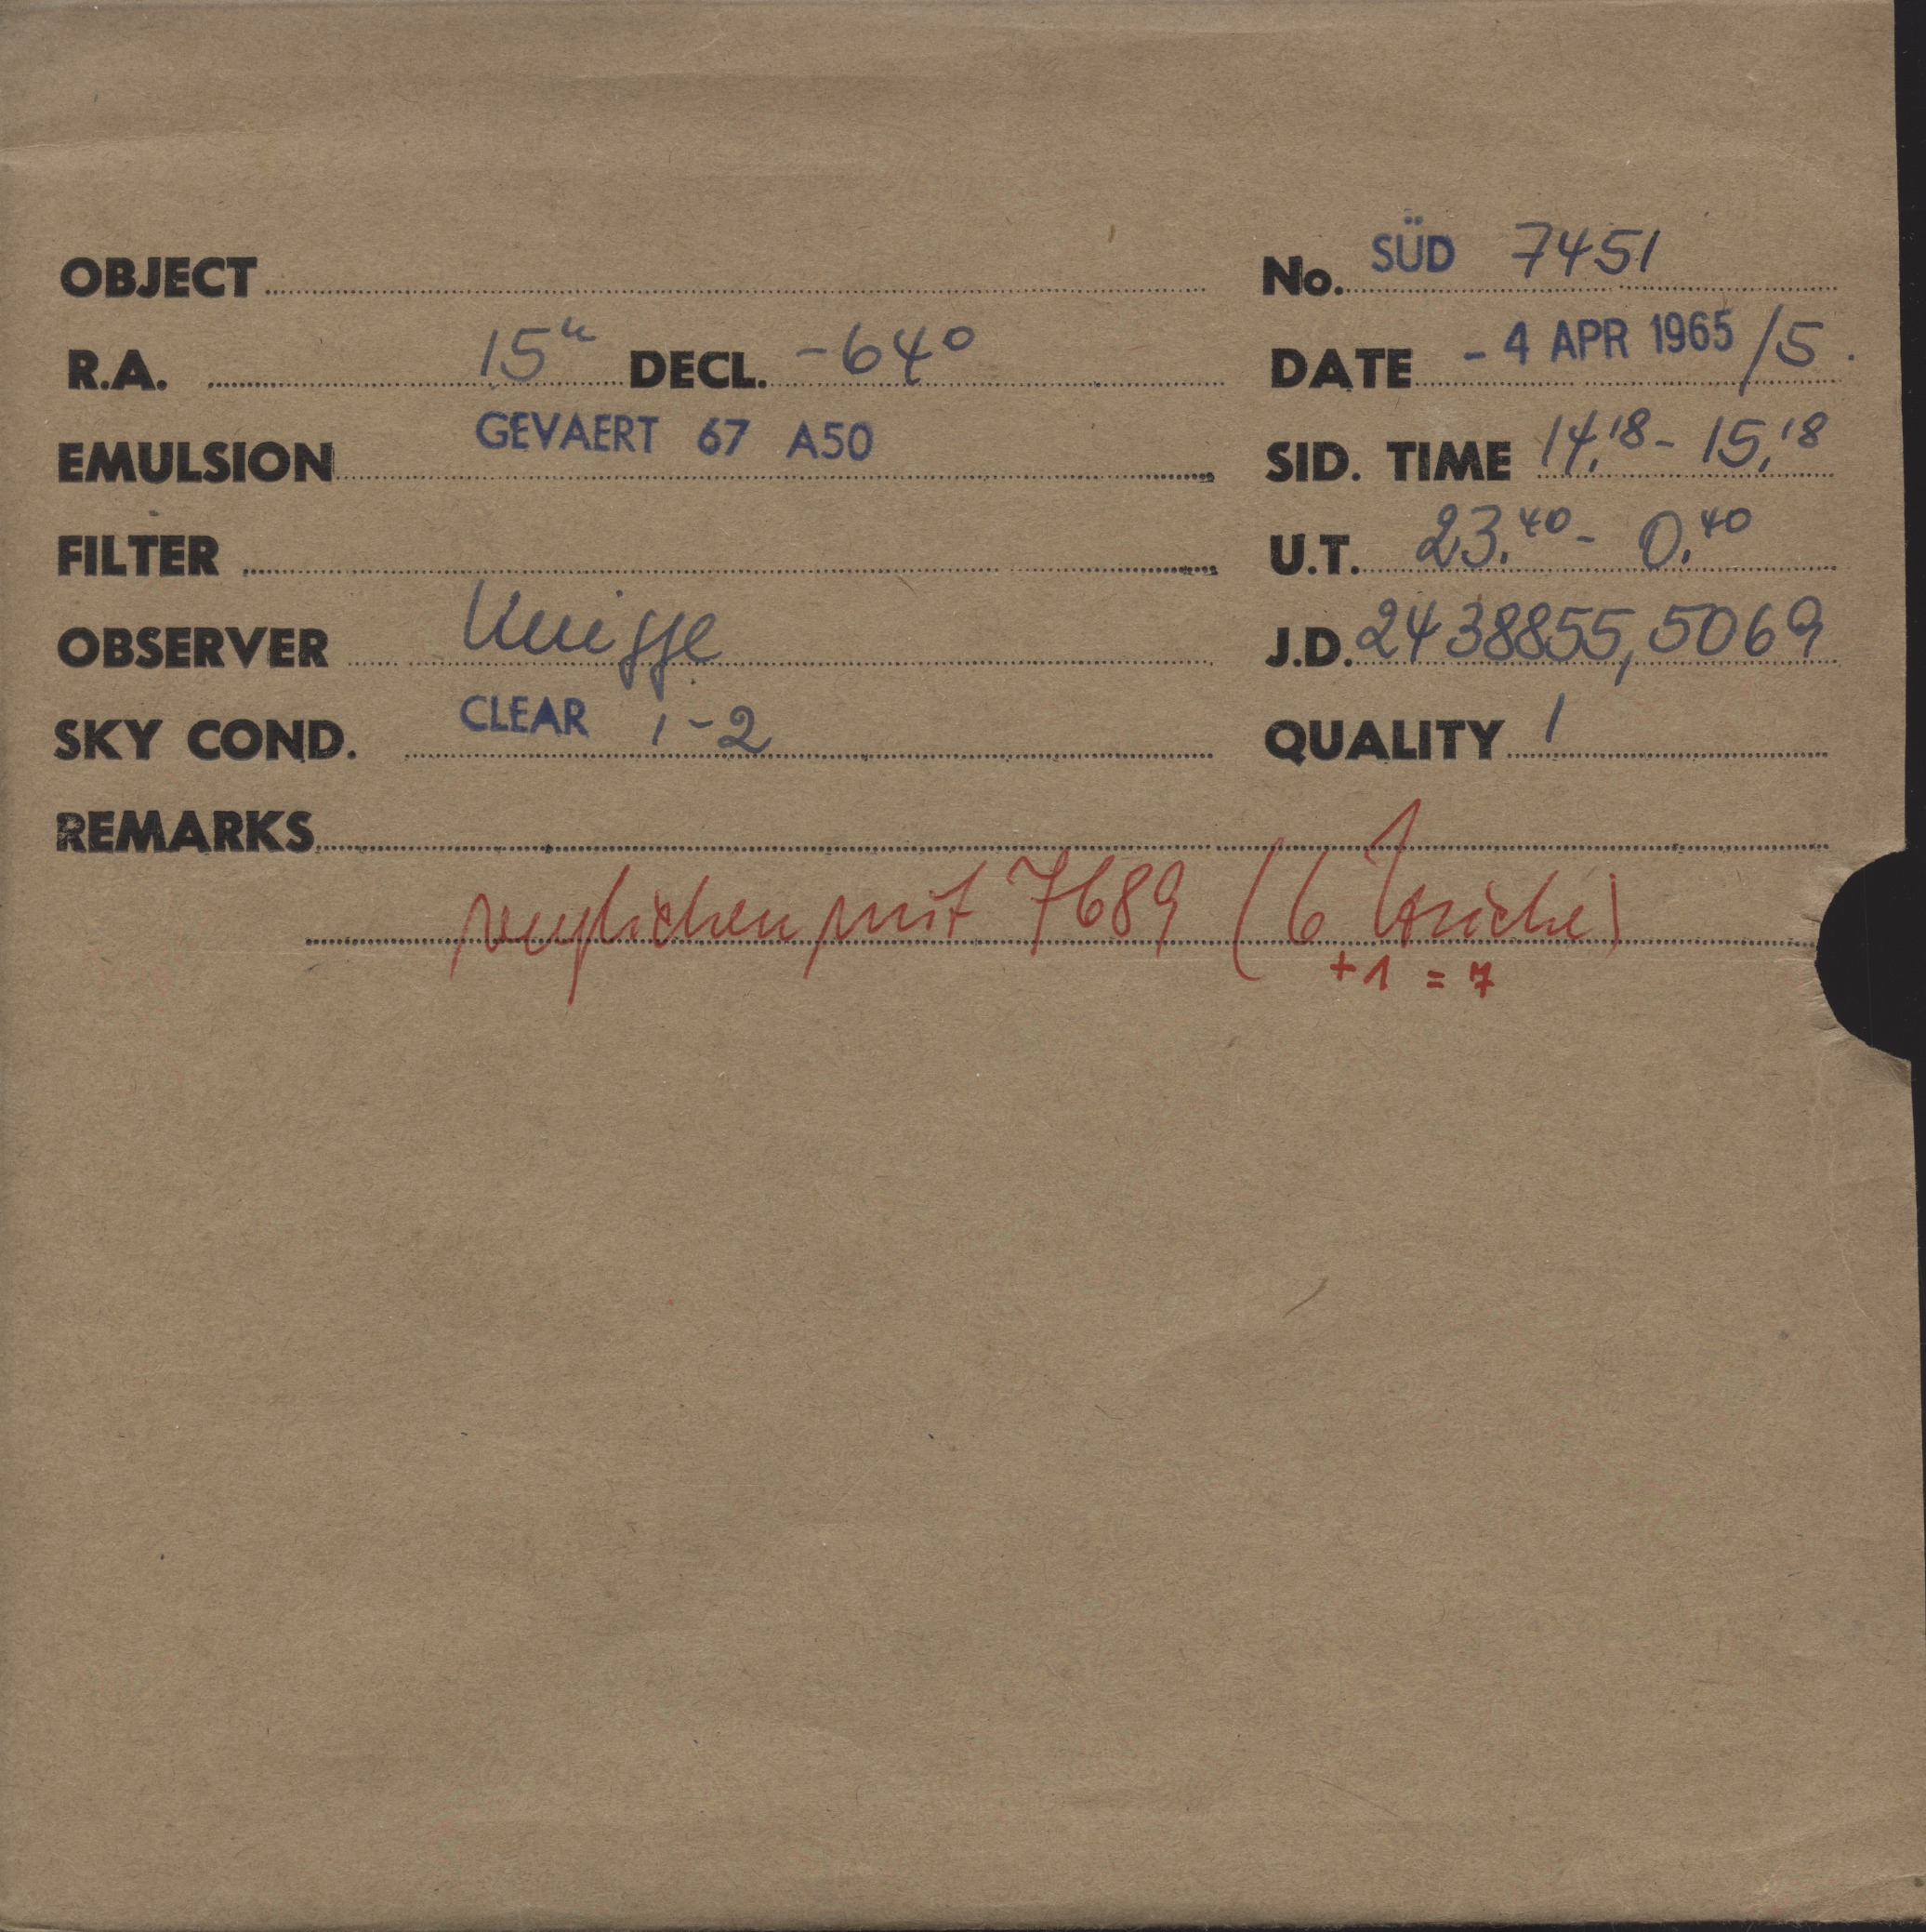 OBJECT No. SÜD 7451
R.A. 15h DECL. -64° DATE - 4 APR 1965 /5.
EMULSION GEVAERT 67 A50 SID. TIME 14,18 - 15,18
FILTER U.T. 23.40 - 0.40
OBSERVER Knigge J.D. 2438855,5069
SKY COND. CLEAR 1-2 QUALITY 1
REMARKS
verglichen mit 7689 (6 Striche)
+1 = 7